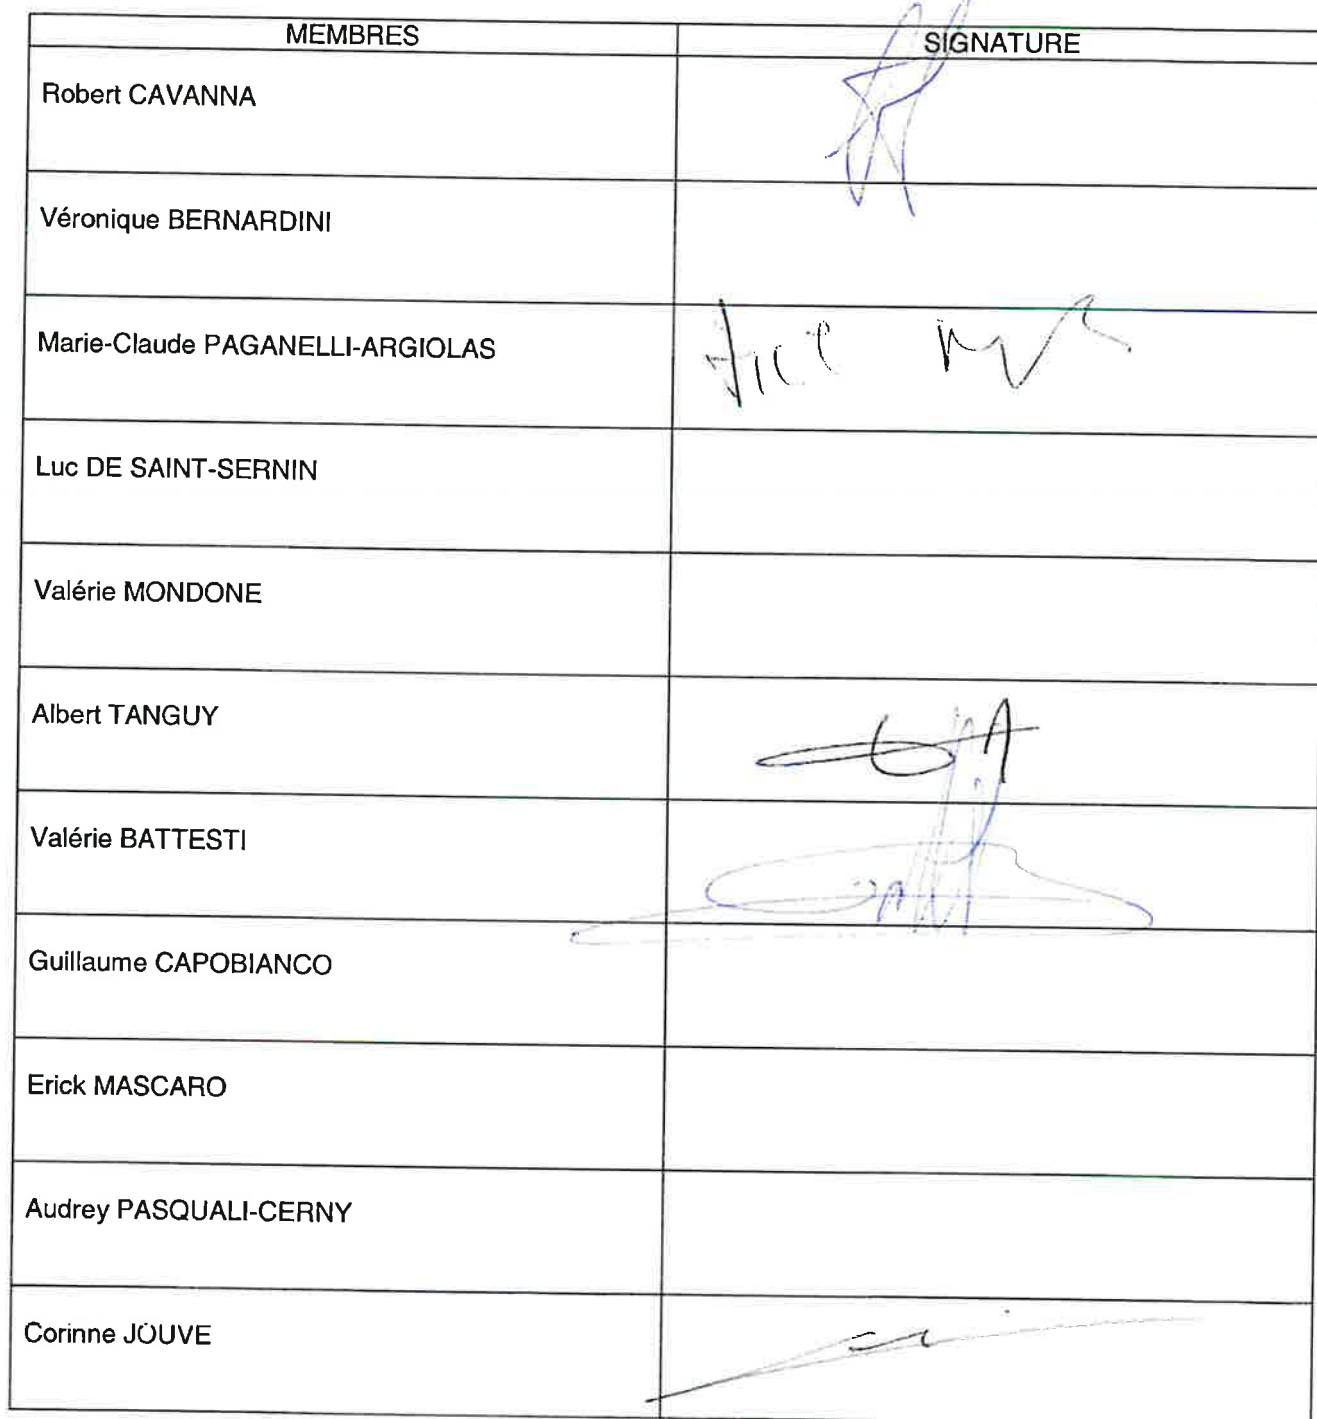 MEMBRES SIGNATURE
Robert CAVANNA
Véronique BERNARDINI
Marie-Claude PAGANELLI-ARGIOLAS
Luc DE SAINT-SERNIN
Valérie MONDONE
Albert TANGUY
Valérie BATTESTI
Guillaume CAPOBIANCO
Erick MASCARO
Audrey PASQUALI-CERNY
Corinne JOUVE